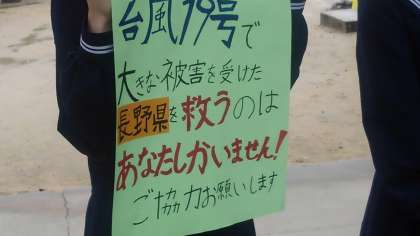 台風19号で
大きな被害を受けた
長野県を救うのは
あなたしかいません!
ご協力お願いします